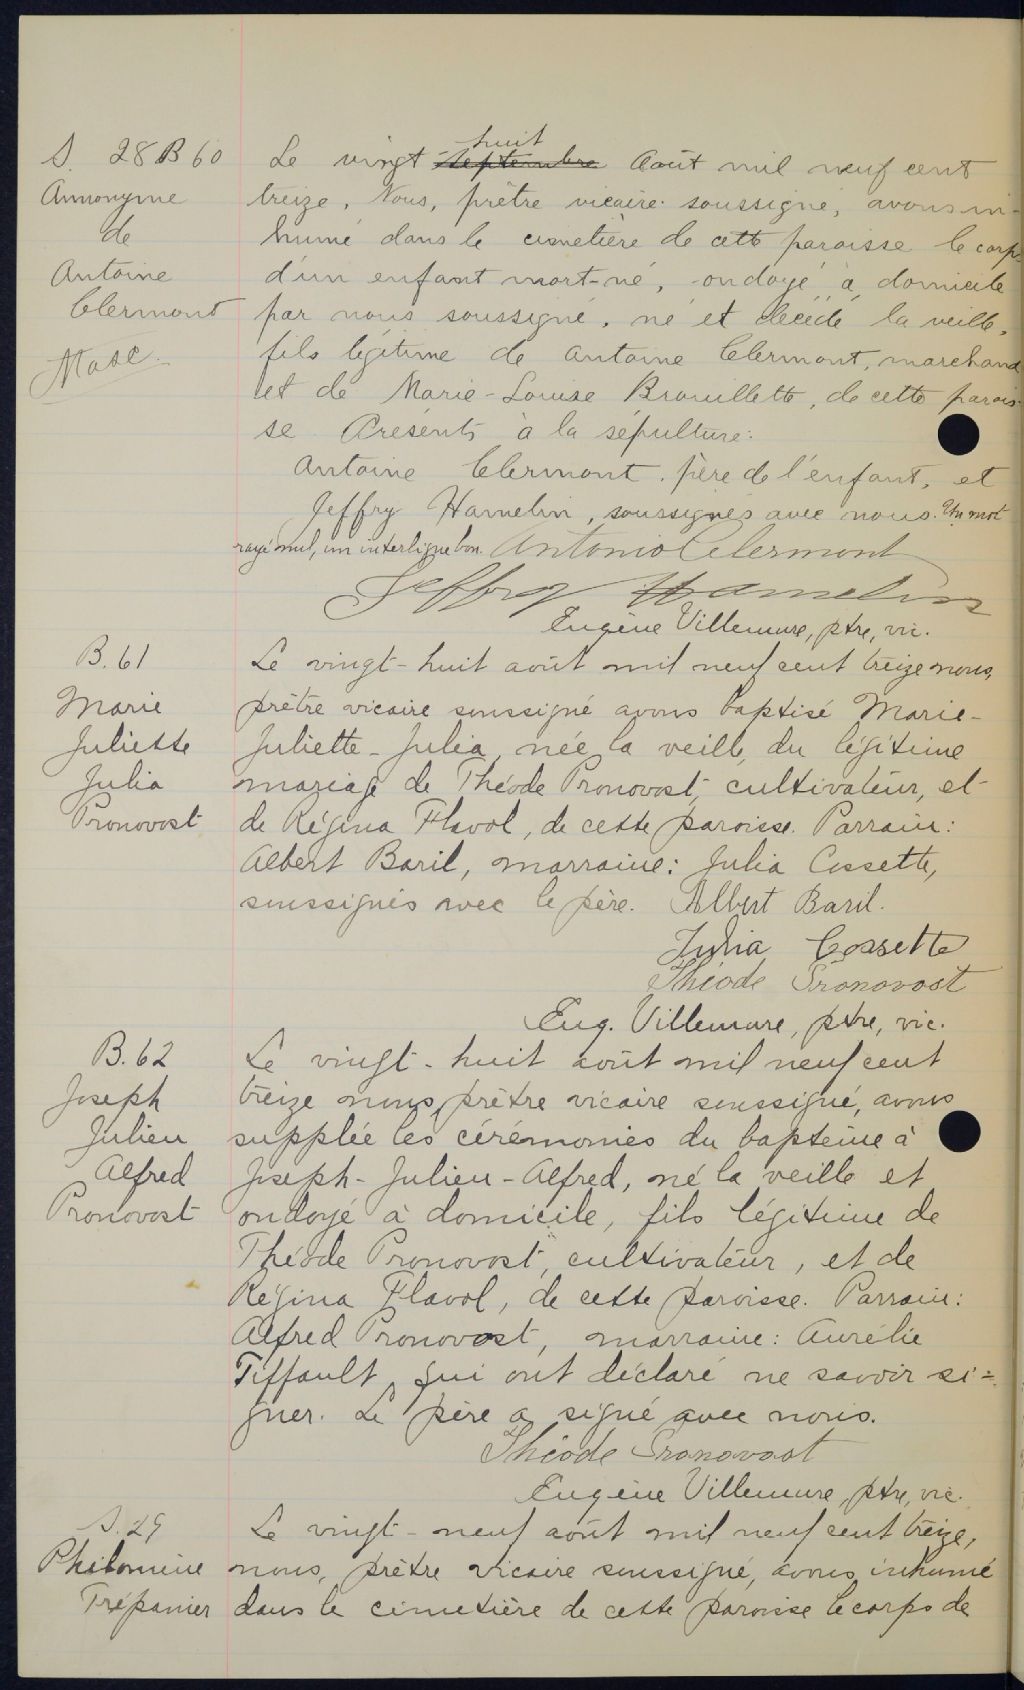 S. 28 B 60
Annonyme
de
Antoine
Clermont
Masc.
huit
Le vingt septembre Août mil neuf cent
treize, Nous, prêtre vicaire soussigné, avons in-
humé dans le cimetière de cette paroisse le corps
d'un enfant mort-né, ondoyé à domicile
par nous soussigné, né et décédé la veille,
fils légitime de Antoine Clermont, marchand
et de Marie-Louise Brouillette, de cette parois-
se Présents à la sépulture:
Antoine Clermont, père de l'enfant, et
Jeffry Hamelin, soussignés avec nous. Un mot
rayé nul, un interligne bon. Antonio Clermont
Jeffry Hamelin
Eugène Villemure, ptre, vic.
B. 61
Marie
Juliette
Julia
Pronovost
Le vingt-huit août mil neuf cent treize nous,
prêtre vicaire soussigné avons baptisé Marie-
Juliette-Julia, née la veille, du légitime
mariage de Théode Pronovost, cultivateur, et
de Régina Flavol, de cette paroisse. Parrain:
Albert Baril, marraine: Julia Cossette,
soussignés avec le père. Albert Baril.
Julia Cossette
Théode Pronovost
Eug. Villemure, ptre, vic.
B. 62
Joseph
Julien
Alfred
Pronovost
Le vingt-huit août mil neuf cent
treize nous, prêtre vicaire soussigné, avons
supplée les cérémonies du baptême à
Joseph-Julien-Alfred, né la veille et
ondoyé à domicile, fils légitime de
Théode Pronovost, cultivateur, et de
Régina Flavol, de cette paroisse. Parrain:
Alfred Pronovost, marraine: Aurélie
Tiffault, qui ont déclaré ne savoir si=
gner. Le père a signé avec nous.
Théode Pronovost
Eugène Villemure, ptre, vic.
S. 29
Philomène
Trépanier
Le vingt-neuf août mil neuf cent treize,
nous, prêtre vicaire soussigné, avons inhumé
dans le cimetière de cette paroisse le corps de